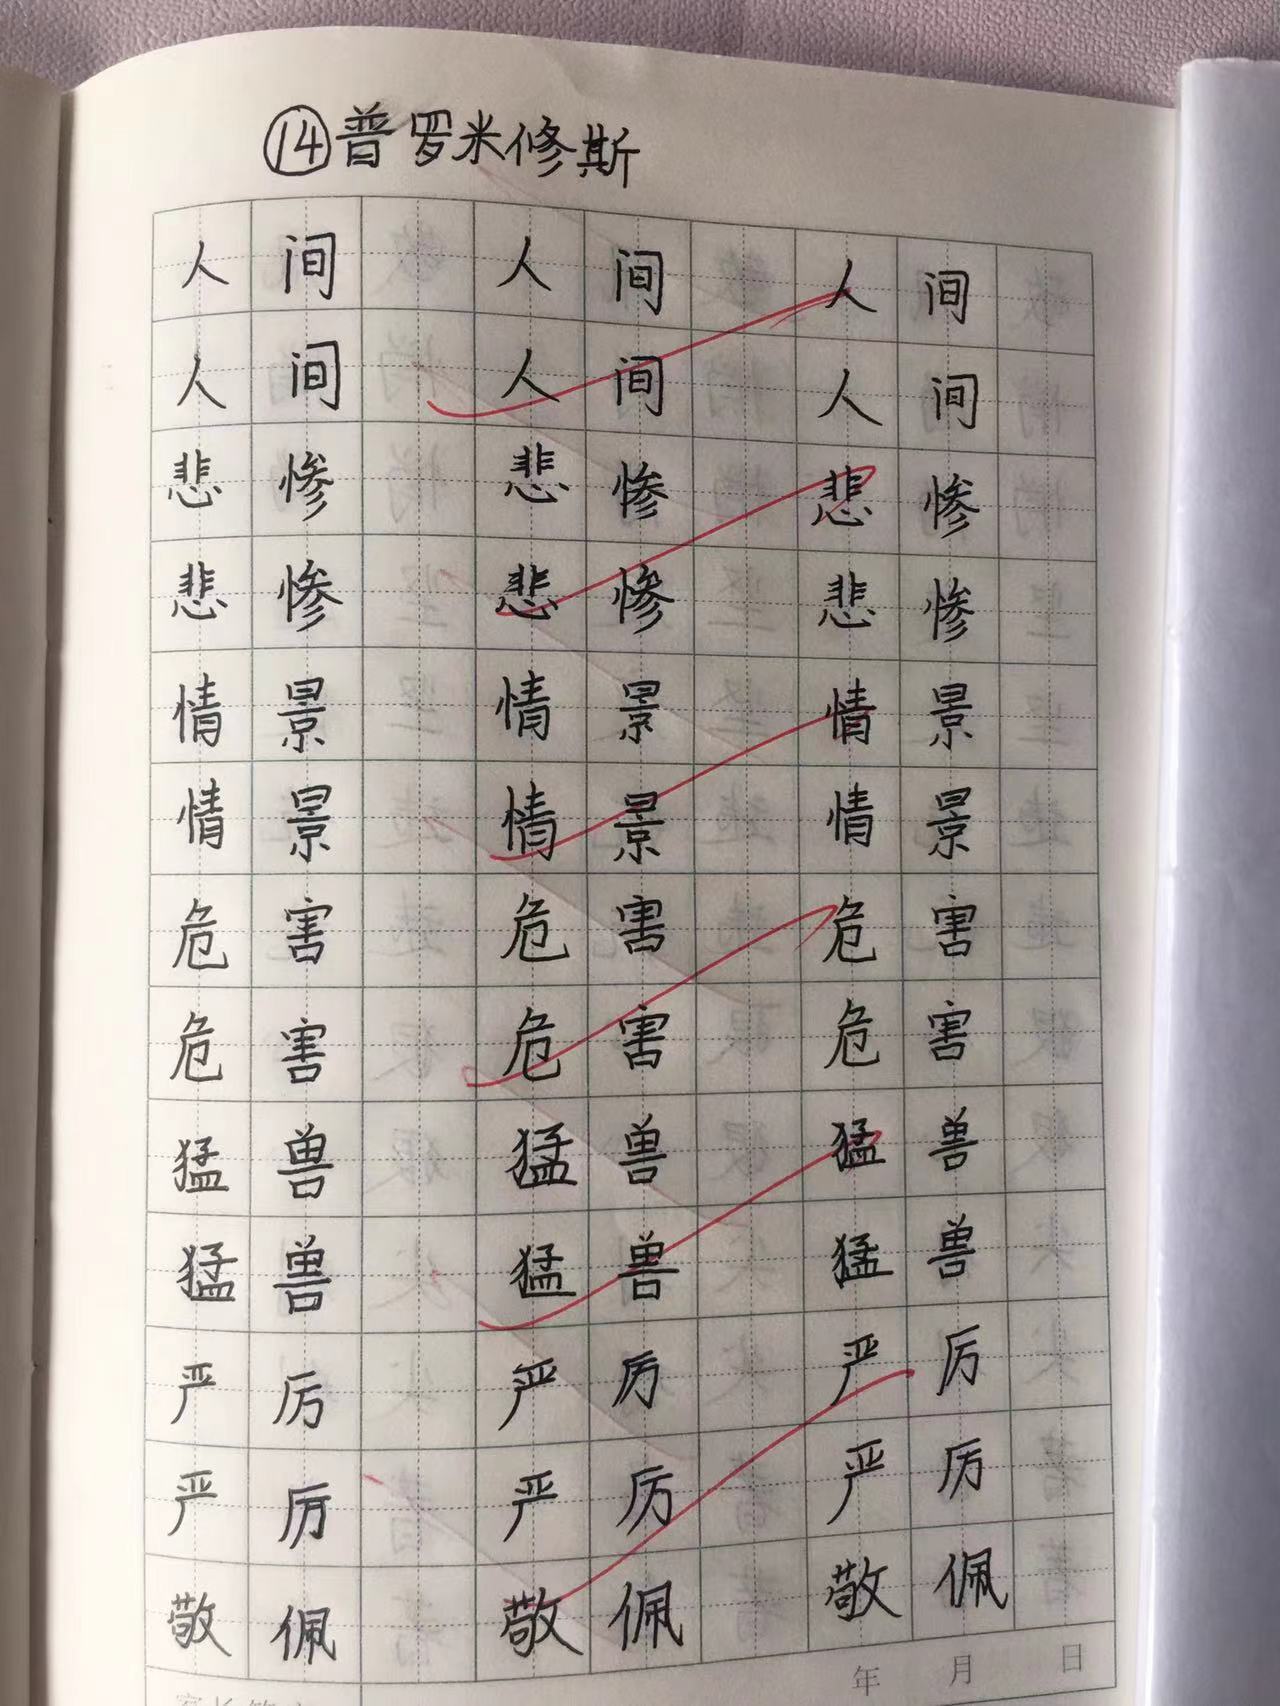 ⑭普罗米修斯
人间 人间 人间
人间 人间 人间
悲惨 悲惨 悲惨
悲惨 悲惨 悲惨
情景 情景 情景
情景 情景 情景
危害 危害 危害
危害 危害 危害
猛兽 猛兽 猛兽
猛兽 猛兽 猛兽
严厉 严厉 严厉
严厉 严厉 严厉
敬佩 敬佩 敬佩
年 月 日